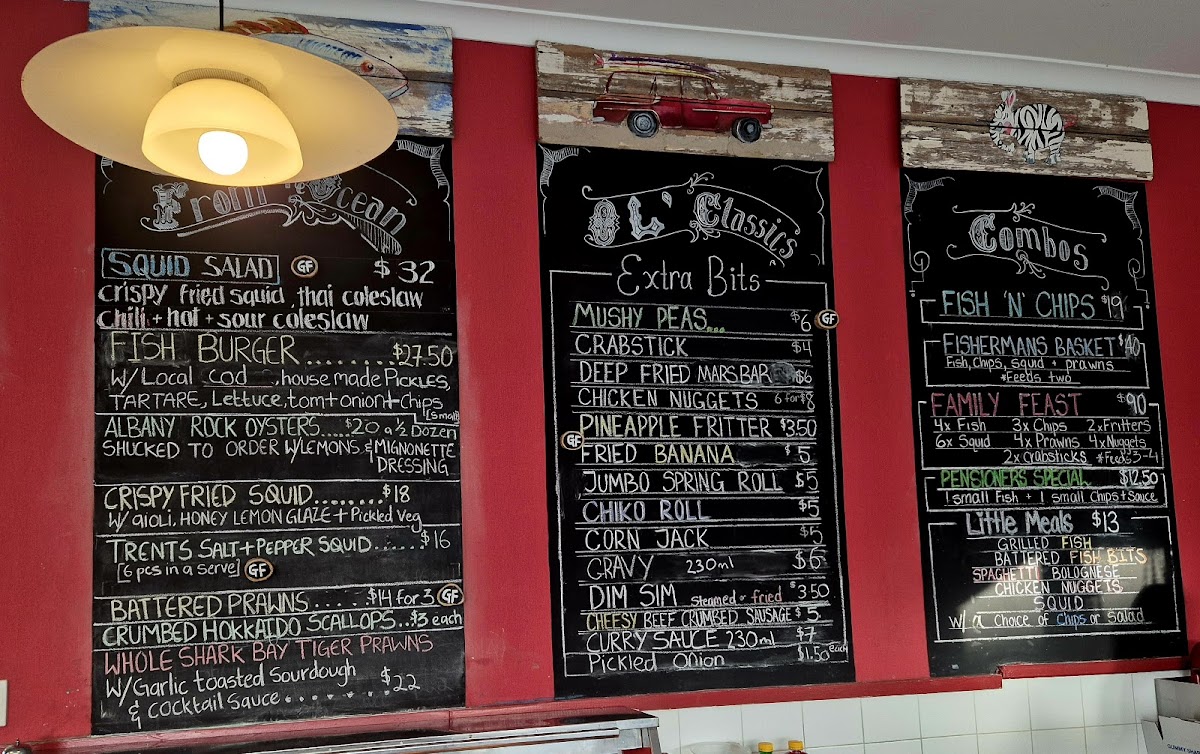 From the Ocean
SQUID SALAD GF $32
crispy fried squid, thai coleslaw
chili + hot + sour coleslaw
FISH BURGER........$27.50
W/ Local cod, house made PICKLES,
TARTARE, Lettuce, tom + onion + chips
[small]
ALBANY ROCK OYSTERS....$20 a ½ Dozen
SHUCKED TO ORDER W/LEMONS & MIGNONETTE
DRESSING
CRISPY FRIED SQUID........$18
W/ aioli, HONEY LEMON GLAZE + Pickled Veg
TRENTS SALT + PEPPER SQUID......$16
[6 pcs in a serve] GF
BATTERED PRAWNS.....$14 for 3 GF
CRUMBED HOKKAIDO SCALLOPS..$3 each
WHOLE SHARK BAY TIGER PRAWNS
W/ Garlic toasted sourdough
& cocktail sauce........$22
OL' Classics
Extra Bits
MUSHY PEAS... $6 GF
CRABSTICK $4
DEEP FRIED MARS BAR $6
CHICKEN NUGGETS 6 for $8
PINEAPPLE FRITTER $3.50
GF
FRIED BANANA $5
JUMBO SPRING ROLL $5
CHIKO ROLL $5
CORN JACK $5
GRAVY 230ml $6
DIM SIM steamed or fried $3.50
CHEESY BEEF CRUMBED SAUSAGE $5
CURRY SAUCE 230ml $7
Pickled Onion $1.50 each
Combos
FISH 'N' CHIPS $19
FISHERMANS BASKET $40
Fish, Chips, squid + prawns
*Feeds two
FAMILY FEAST $90
4x Fish 3x Chips 2x Fritters
6x Squid 4x Prawns 4x Nuggets
2x Crabsticks *Feeds 3-4
PENSIONERS SPECIAL $12.50
1 small Fish + 1 small Chips + Sauce
Little Meals $13
GRILLED FISH
BATTERED FISH BITS
SPAGHETTI BOLOGNESE
CHICKEN NUGGETS
SQUID
W/ a choice of Chips or Salad